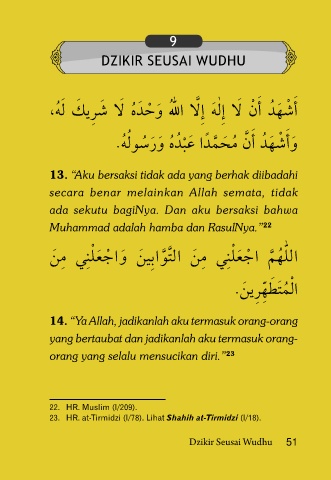 9
DZIKIR SEUSAI WUDHU
أَشْهَدُ أَنْ لَا إِلٰهَ إِلَّا اللهُ وَحْدَهُ لَا شَرِيكَ لَهُ،
وَأَشْهَدُ أَنَّ مُحَمَّدًا عَبْدُهُ وَرَسُولُهُ.
13. “Aku bersaksi tidak ada yang berhak diibadahi
secara benar melainkan Allah semata, tidak
ada sekutu bagiNya. Dan aku bersaksi bahwa
Muhammad adalah hamba dan RasulNya.”22
اللّٰهُمَّ اجْعَلْنِي مِنَ التَّوَّابِينَ وَاجْعَلْنِي مِنَ
الْمُتَطَهِّرِينَ.
14. “Ya Allah, jadikanlah aku termasuk orang-orang
yang bertaubat dan jadikanlah aku termasuk orang-
orang yang selalu mensucikan diri.”23
22. HR. Muslim (I/209).
23. HR. at-Tirmidzi (I/78). Lihat Shahih at-Tirmidzi (I/18).
Dzikir Seusai Wudhu 51